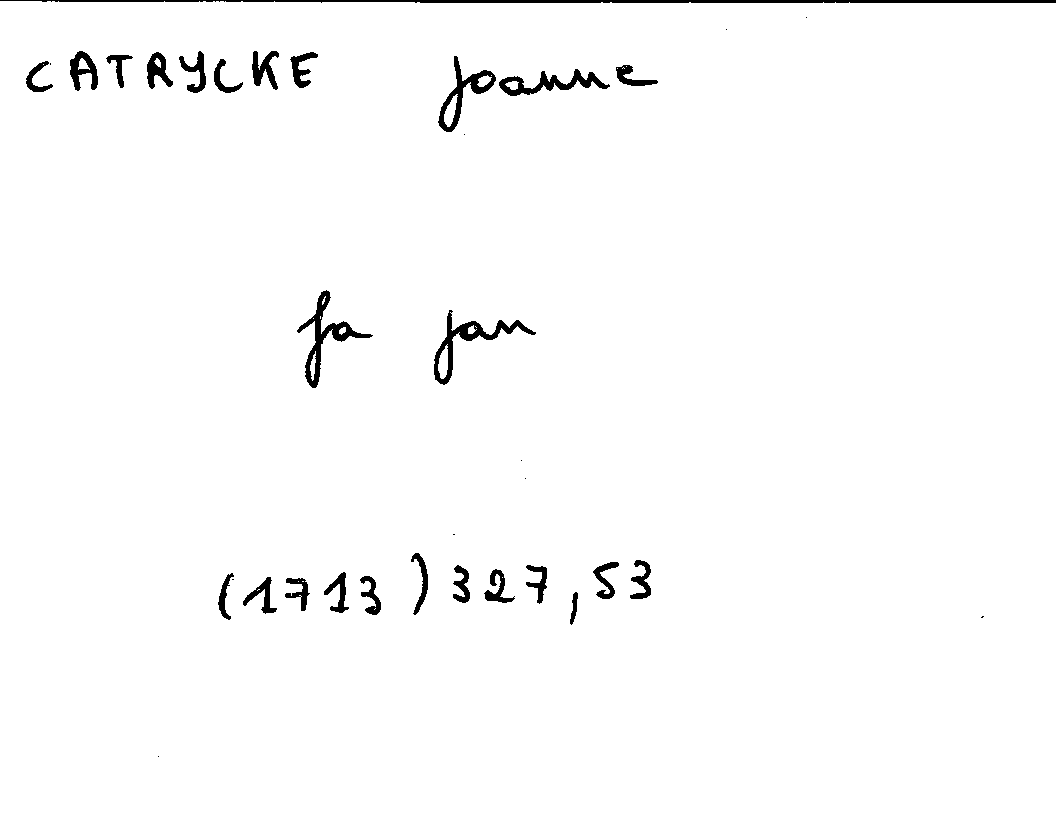 CATRYCKE Joanne
fa Jan
(1713) 327,53